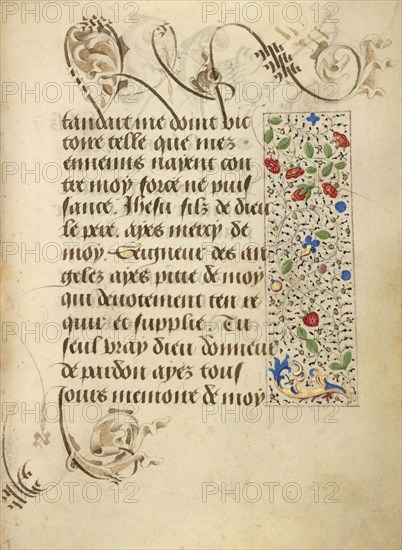 tandart me doint vic
toire telle que mez
ennemis nayent con
tre moy force ne puis
sance. Jhesu filz de dieu
le pere ayes mercy de
moy. Seigneur des an
gelez ayes pitie de moy
qui devotement ten re
quir et supplie. Tu
seul vray dieu donneur
de pardon ayez tous
jours memoire de moy